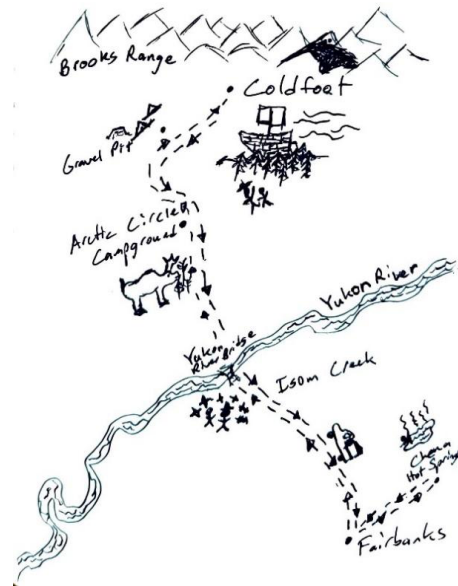 Brooks Range
Coldfoot
Gravel Pit
Arctic Circle
Campground
Yukon River
Yukon
River Bridge
Isom Creek
Chena
Hot Springs
Fairbanks